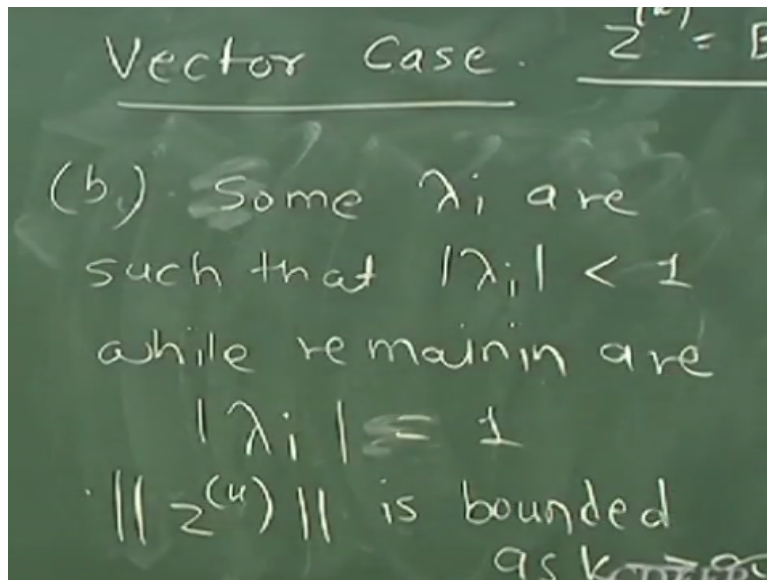 Vector Case. z^(k) = B
(b.) Some λi are
such that |λi| < 1
while remainin are
|λi| = 1
||z^(k)|| is bounded
as k → ∞